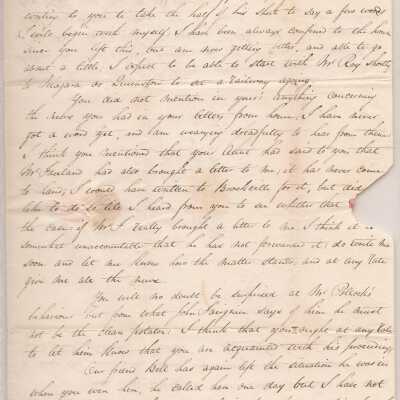 writing to you to take the half of his sheet to say a few words
I will begin with myself, I have been always confined to the house
since you left this, but am now getting better, and able to go
about a little, I expect to be able to start with Mr Roy shortly
to Niagara or Queenston to see a railway again.
You did not mention in your's anything concerning
the news you had in your letters from home, I have never
got a word yet, and am wearying dreadfully to hear from them
I think you mentioned that your Aunt had said to you that
Mr had also brought a letter to me, it has never come
to hand, I would have written to Brockville for it, but did
like to do so till I heard from you to see whether that
the case, if Mr I really brought a letter to me I think it is
somewhat unaccountable that he has not forwarded it, do write me
soon and let me know how the matter stands, and at any rate
give me all the news.
You will no doubt be surprised at Mr Pollock's
behaviour but from what John says of him he must
not be the clean potatoe. I think that you ought at any rate
to let him know that you are acquainted with his proceedings
Our friend Bell has again left the situation he was in
when you were here, he called here one day but I have not